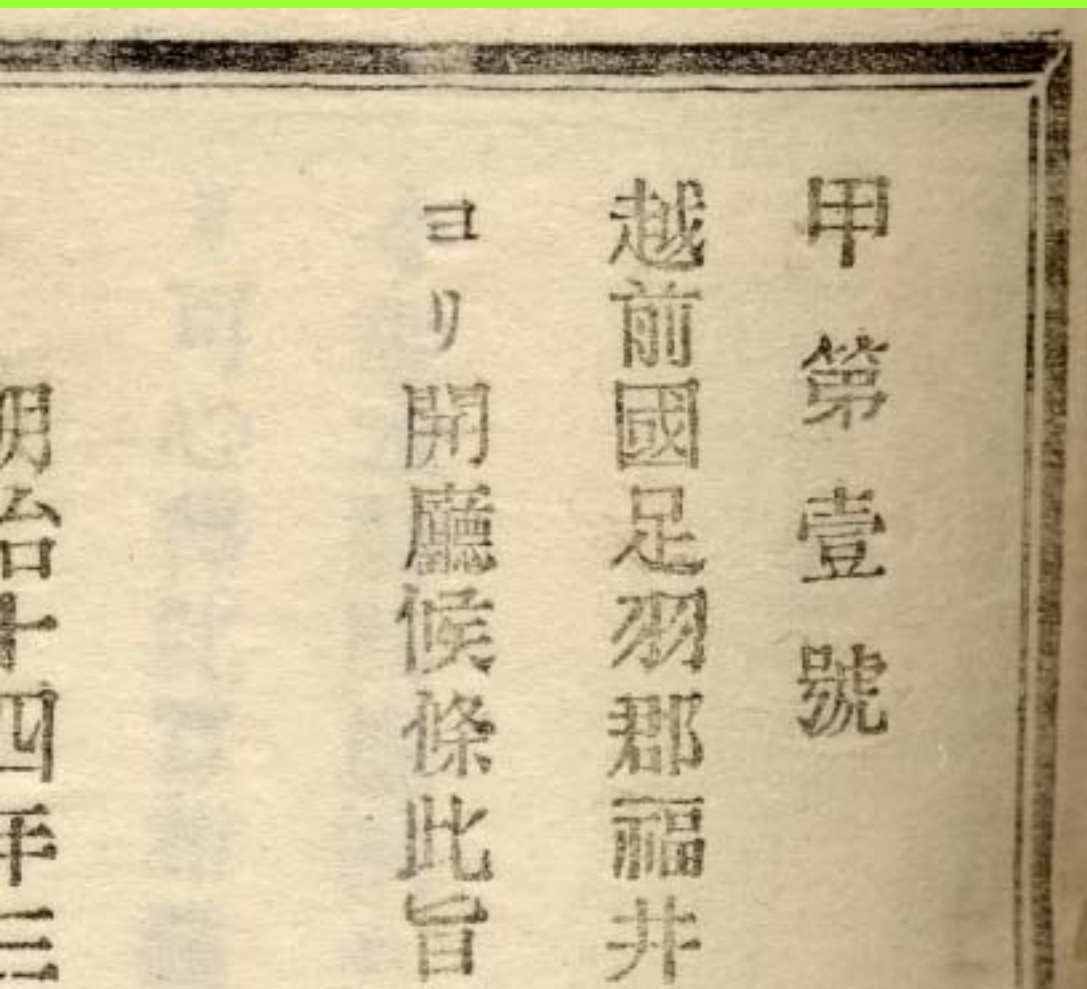 甲第壹號
越前國足羽郡福井
ヨリ開廳候條此旨
明治十四年三